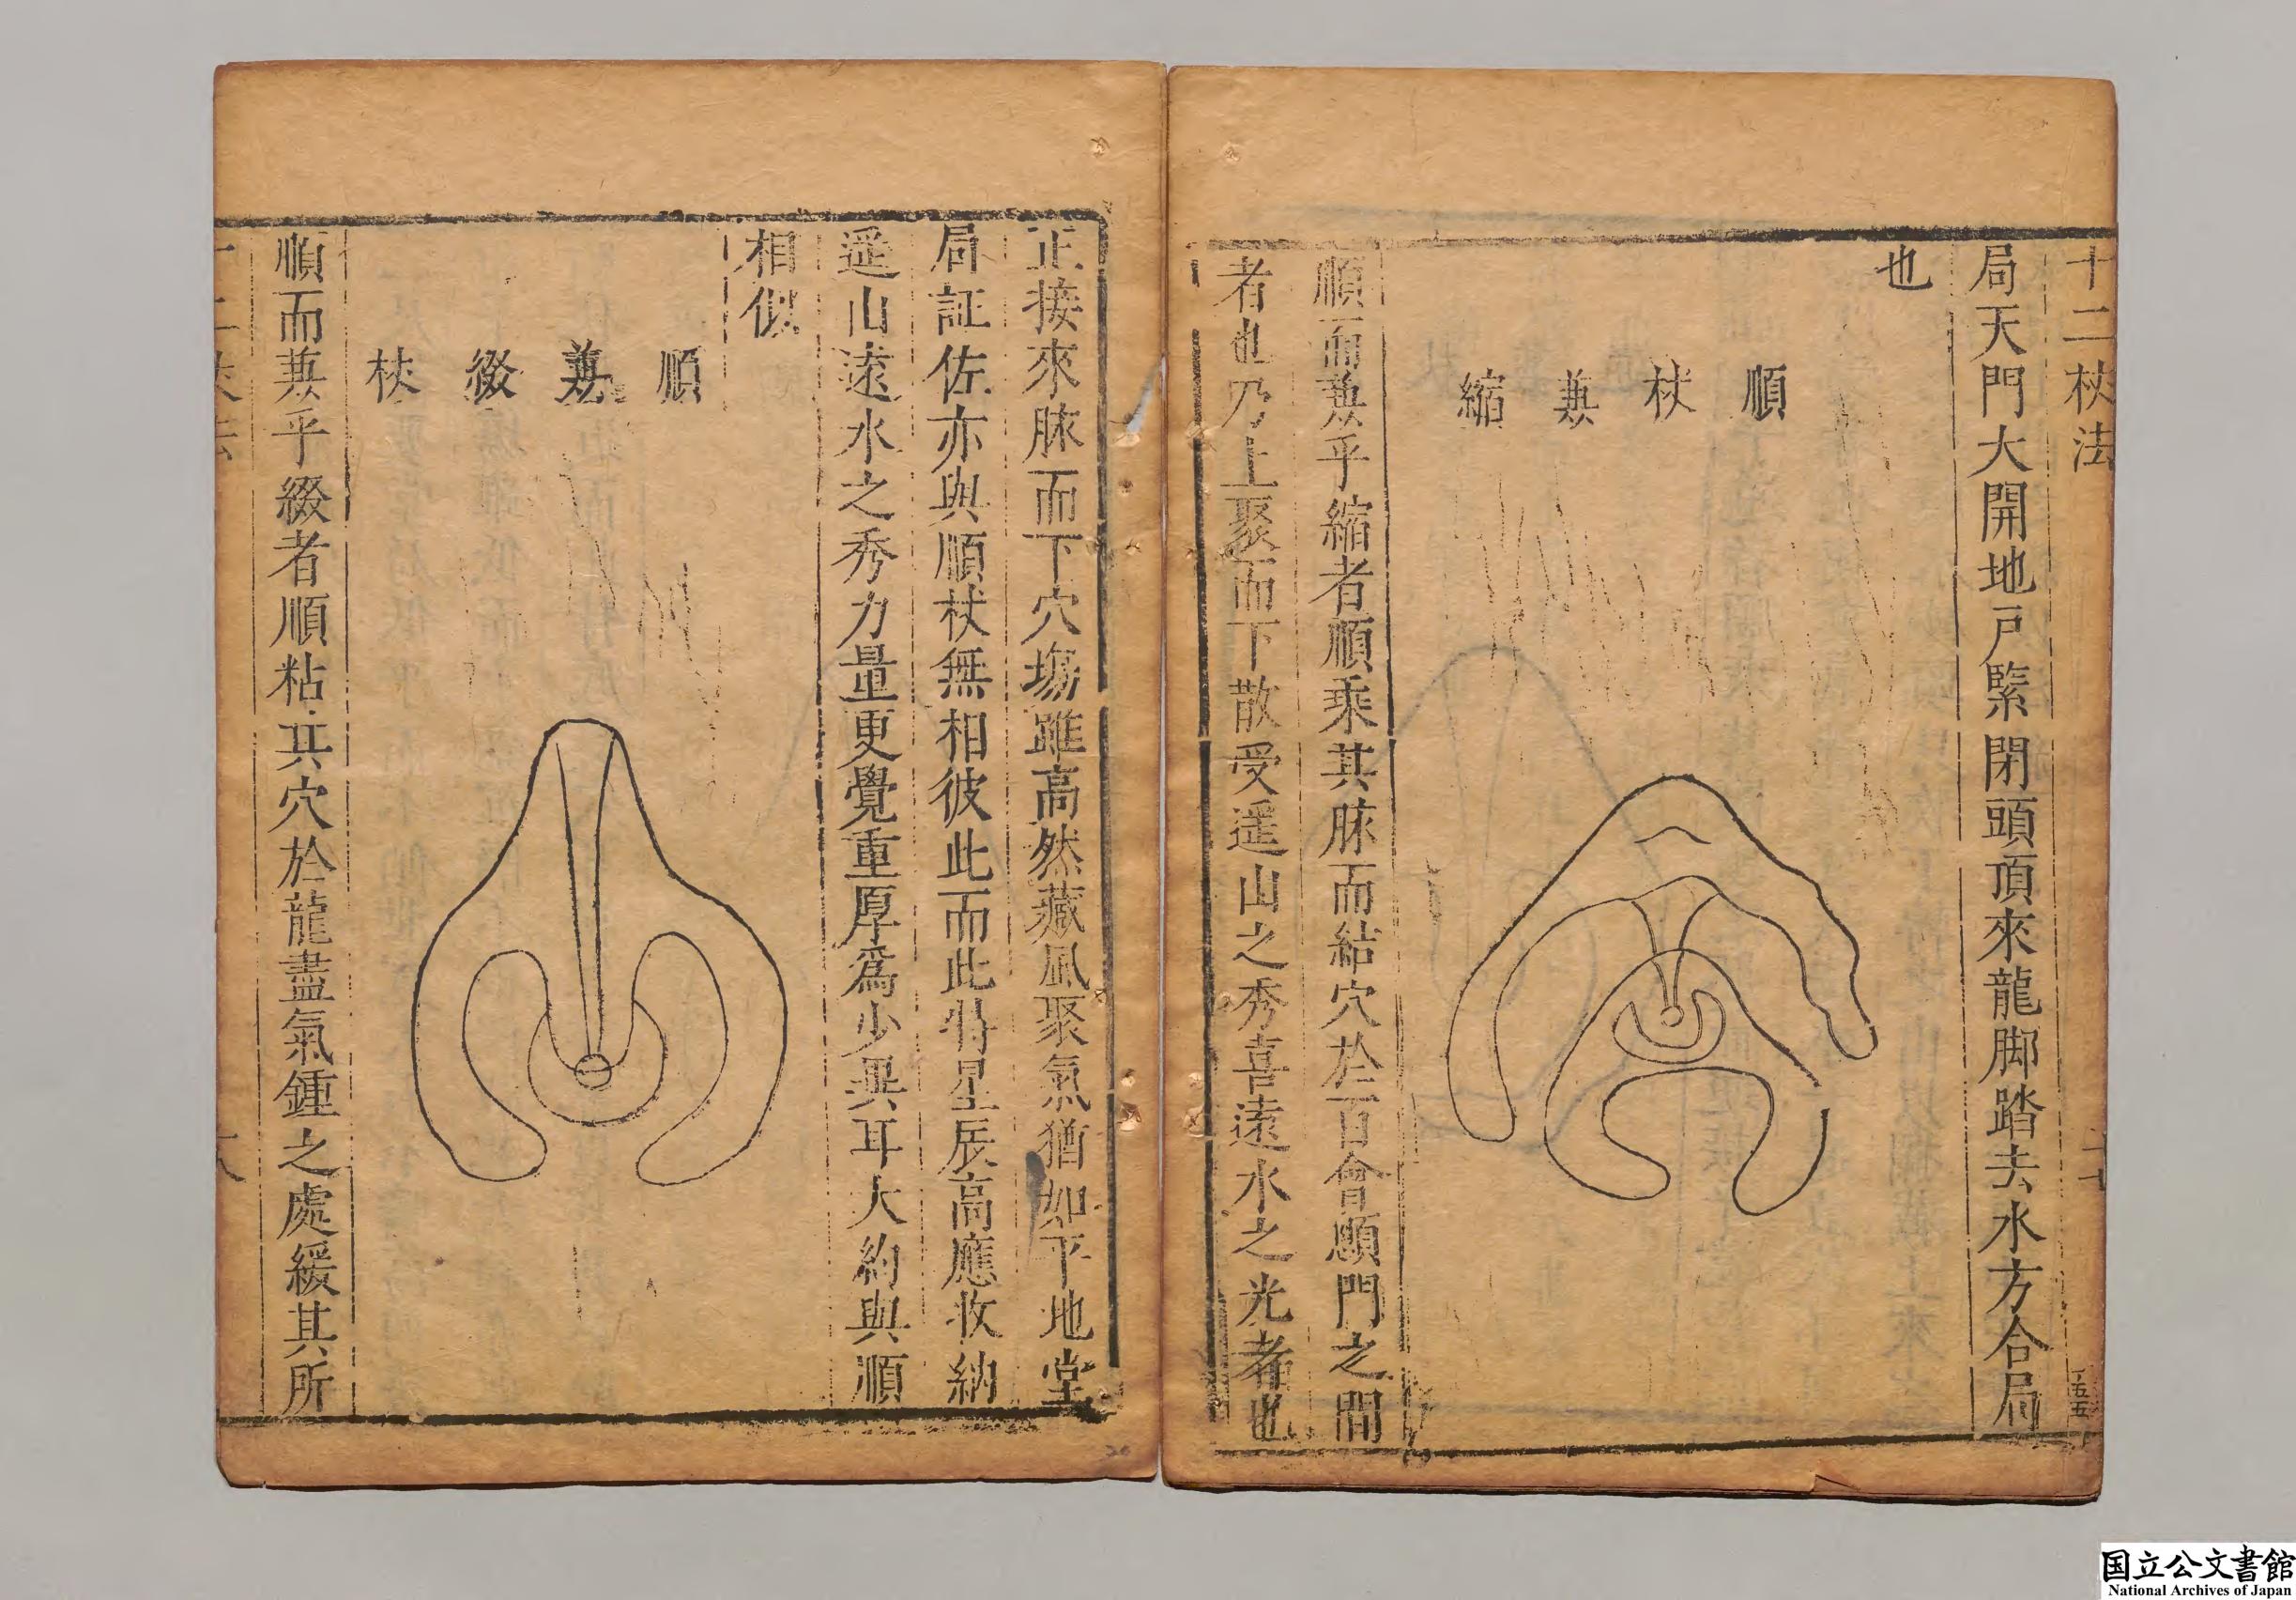 十二杖法
五五
局天門大開地戸緊閉頭頂來龍脚踏去水方合局
也
順杖兼縮
順而兼乎縮者順乘其脉而結穴於百會顖門之間
者也乃上聚而下散受遥山之秀喜遠水之光者也
正接來脉而下穴塲雖高然藏風聚氣猶如平地堂
局証佐亦與順杖無相彼此而此特星辰高應收納
遥山遠水之秀力量更覺重厚爲少異耳大約與順
相似
順兼綴杖
順而兼乎綴者順粘其穴於龍盡氣鍾之處緩其所
国立公文書館
National Archives of Japan